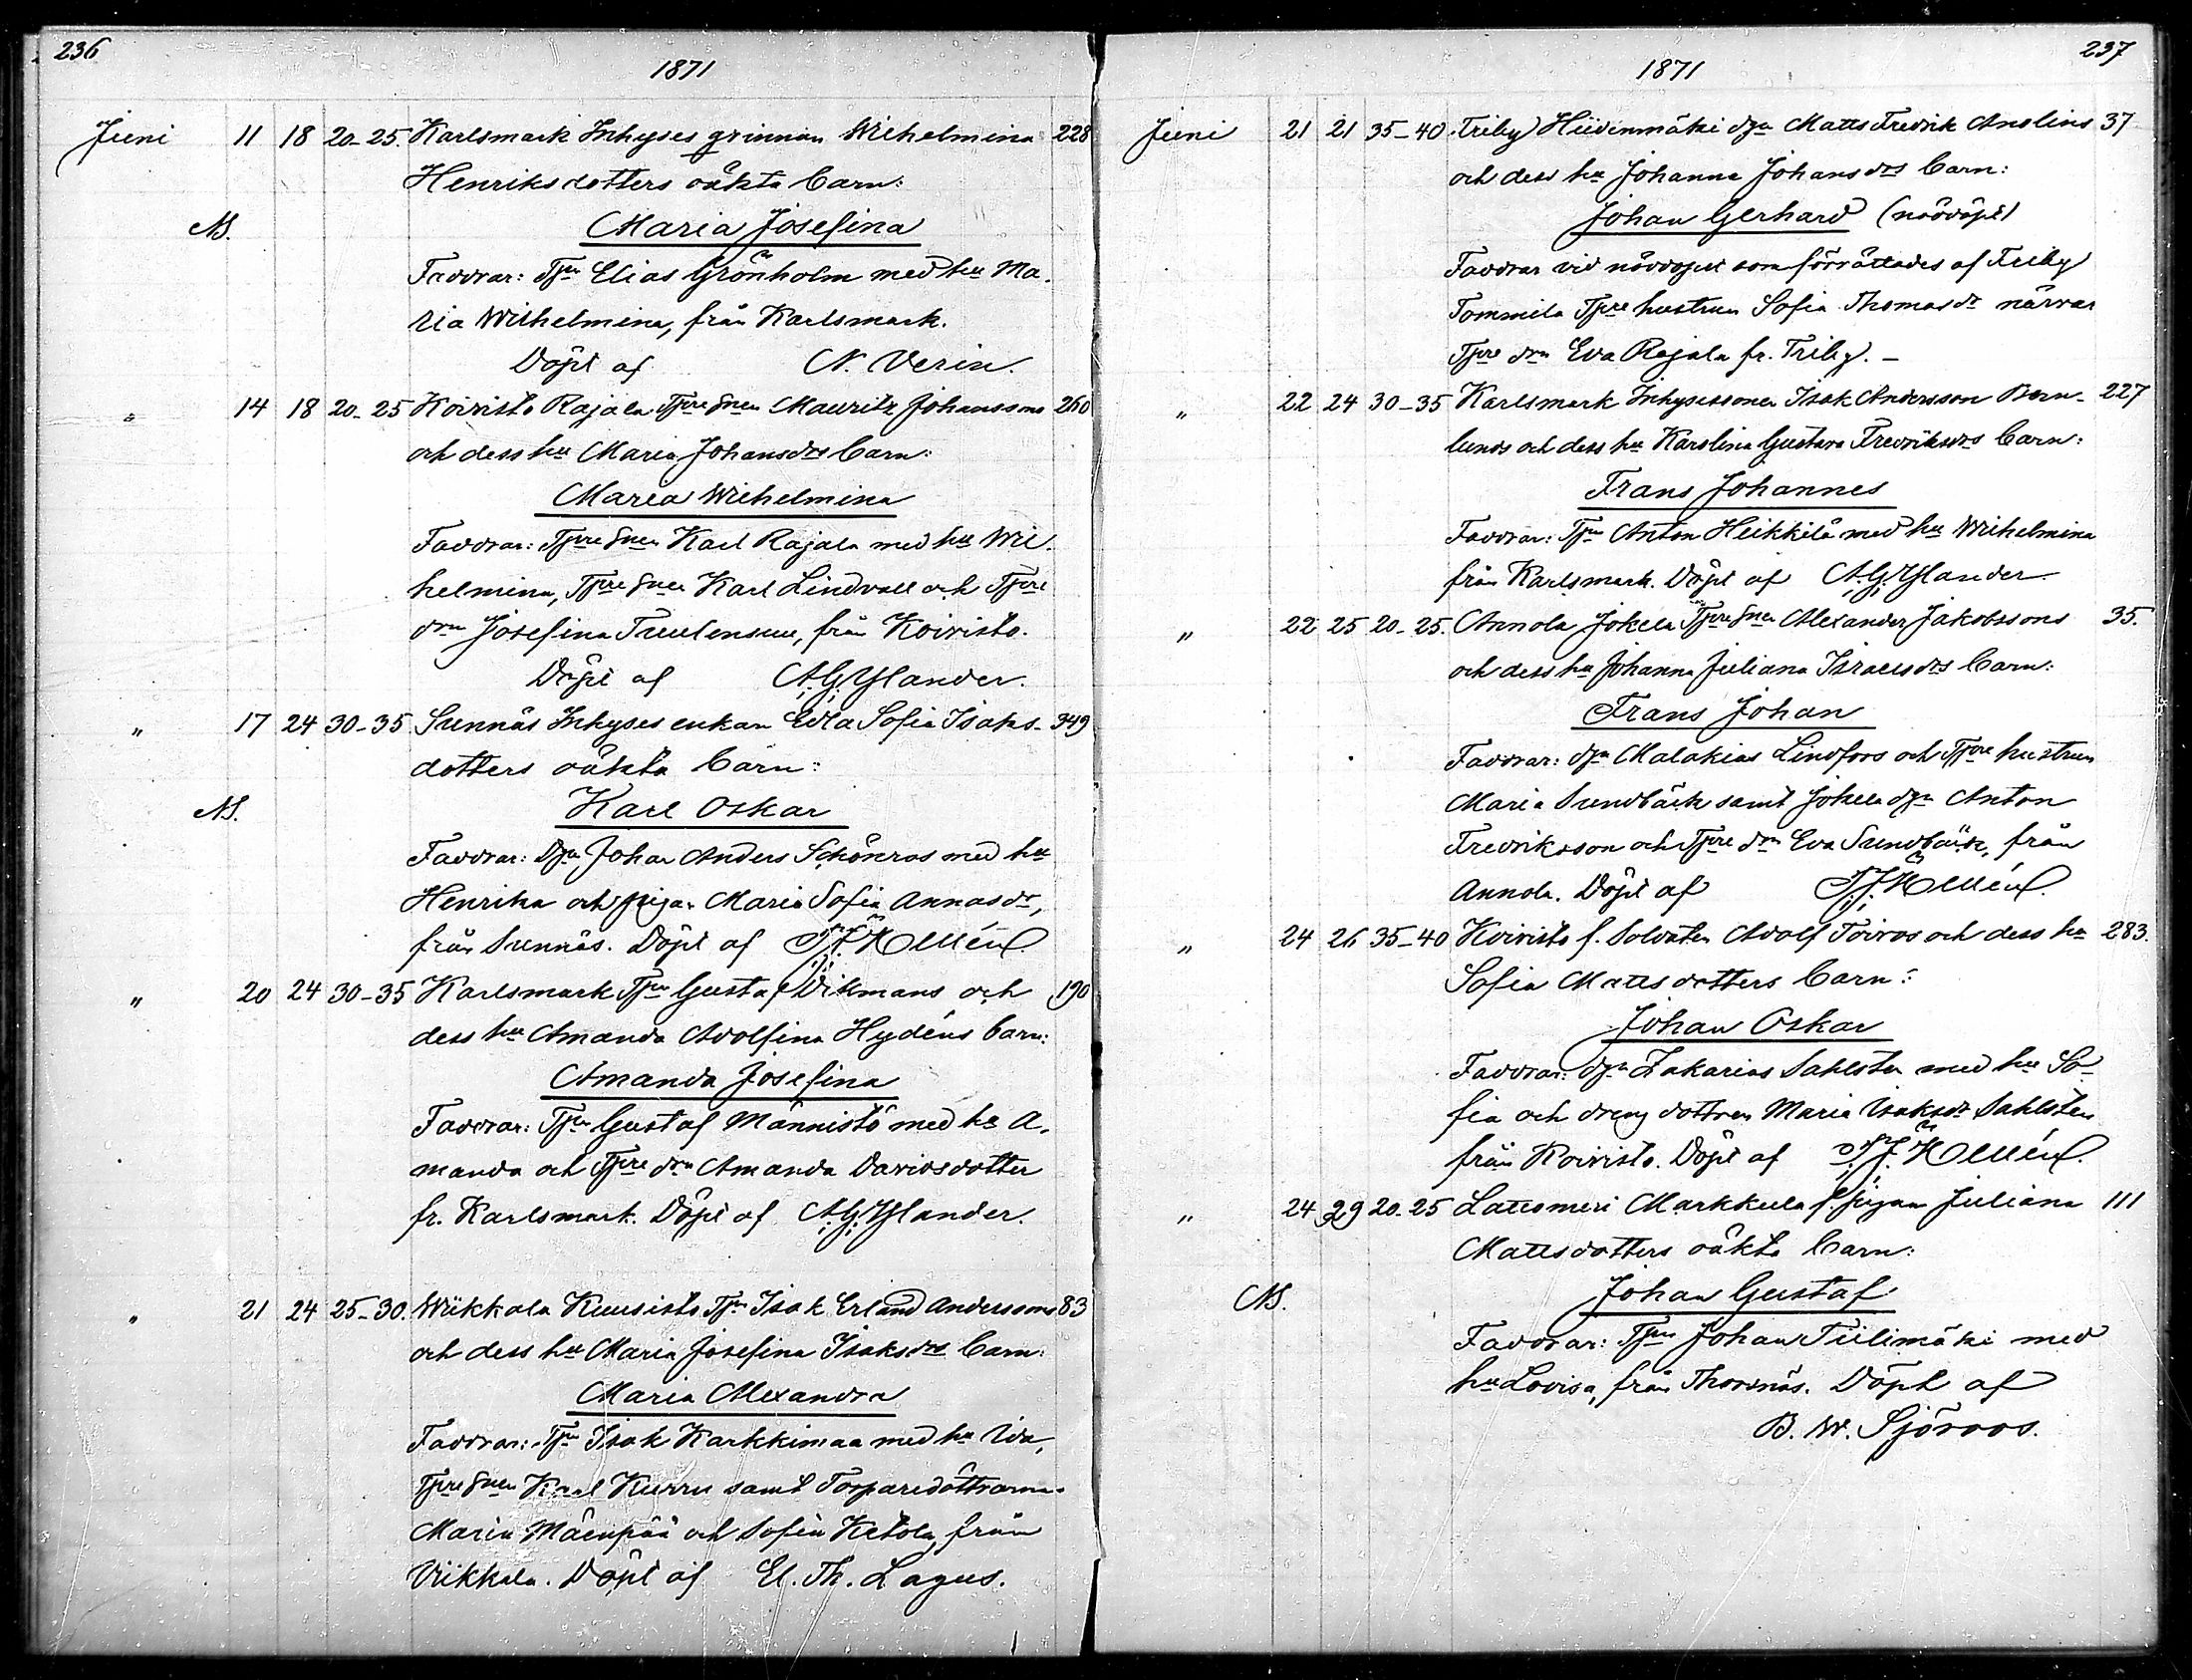 236
1871
Juni 11 18 20-25. Karlsmark Inhyses qvinnan Wilhelmina 228
Henriksdotters oäkta barn:
NB. Maria Josefina
Faddrar: Tjn Elias Grönholm med hu Ma-
ria Wilhelmina, från Karlsmark.
Döpt af N. Verin.
" 14 18 20-25 Koivisto Rajala Tjre Snen Mauritz Johanssons 260
och dess hu Maria Johansdrs barn:
Maria Wilhelmina
Faddrar: Tjre Snen Karl Rajala med hu Wil-
helmina, Tjre Snen Karl Lindvall och Tjre
drn Josefina Tuulensuu, från Koivisto.
Döpt af A.G. Ylander.
" 17 24 30-35 Sunnäs Inhyses enkan Edla Sofia Isaks- 349
dotters oäkta barn:
NB. Karl Oskar
Faddrar: Dgn Johan Anders Schönros med hu
Henrika och pigan Maria Sofia Annasdr,
från Sunnäs. Döpt af
" 20 24 30-35 Karlsmark Tjn Gustaf Wikmans och 190
dess hu Amanda Adolfina Hydéns barn:
Amanda Josefina
Faddrar: Tjn Gustaf Männistö med hu A-
manda och Tjre drn Amanda Davidsdotter
fr. Karlsmark. Döpt af A.G. Ylander.
" 21 24 25-30. Wiikkala Kuusisto Tjn Isak Erland Anderssons 83
och dess hu Maria Josefina Isaksdrs barn:
Maria Alexandra
Faddrar: Tjn Isak Karkkimaa med hu Ida,
Tjre Snen Karl Kurru samt Torparedöttrarna
Maria Mäenpää och Sofia Ketola, från
Viikkala. Döpt af El. Th. Lagus.
237
1871
Juni 21 21 35-40 Friby Hiidenmäki dgn Matts Fredrik Anolins 37
och dess hu Johanna Johansdrs barn:
Johan Gerhard (nöddöpt)
Faddrar vid nöddopet som förrättades af Friby
Tommila Tjre hustrun Sofia Thomasdr närvar
Tjre drn Eva Rajala fr. Friby. -
" 22 24 30-35 Karlsmark Inhysessonen Isak Andersson Bern- 227
lunds och dess hu Karolina Gustava Fredriksdrs barn:
Frans Johannes
Faddrar: Tjn Anton Heikkilä med hu Wilhelmina
från Karlsmark. Döpt af A.G. Ylander
" 22 25 20-25. Annola Jokela Tjre Snen Alexander Jakobssons 35.
och dess hu Johanna Juliana Israelsdrs barn:
Frans Johan
Faddrar: dgn Malakias Lindfors och Tjre hustrun
Maria Sundbäck samt Jokela dgn Anton
Fredriksson och Tjre drn Eva Sundbäck, från
Annola. Döpt af
" 24 26 35-40 Koivisto f. Soldaten Adolf Toivos och dess hu 283.
Sofia Mattsdotters barn:
Johan Oskar
Faddrar: dgn Zakarias Sahlsten med hu So-
fia och dreng dottren Maria Isaksdr Sahlsten
från Koivisto. Döpt af
" 24 29 20-25 Lattomeri Markkula f. pigan Juliana 111
Mattsdotters oäkta barn:
NB. Johan Gustaf
Faddrar: Tjn Johan Tiilimäki med
hu Lovisa, från Thornäs. Döpt af
B. W. Sjöroos.